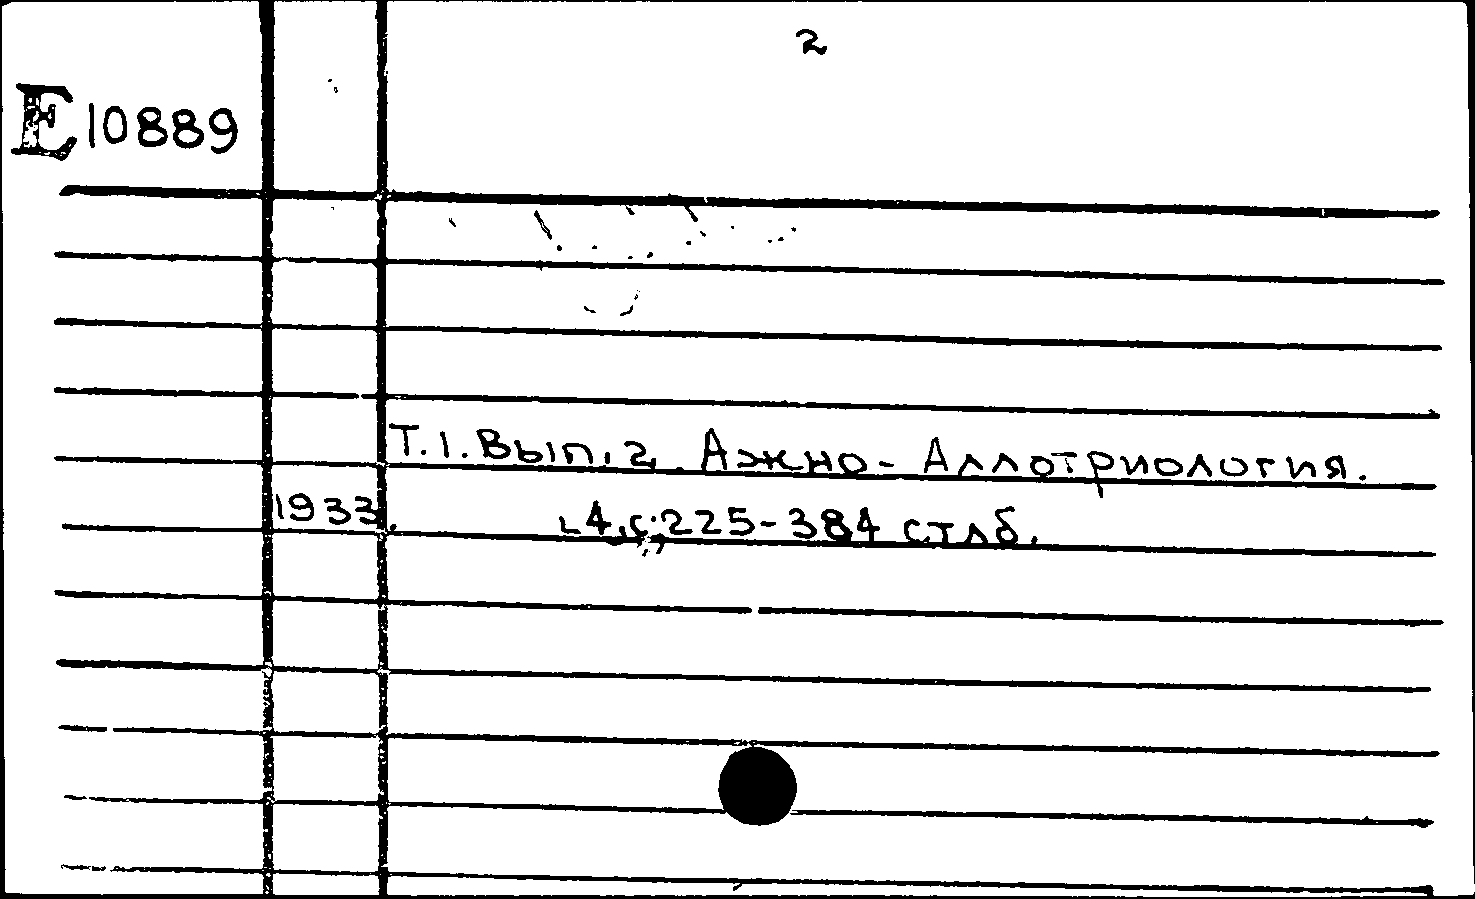 2
E10889
Т.1. Вып. 2. Ажно - Аллотриология.
1933. 4, с. 225-384 стлб.